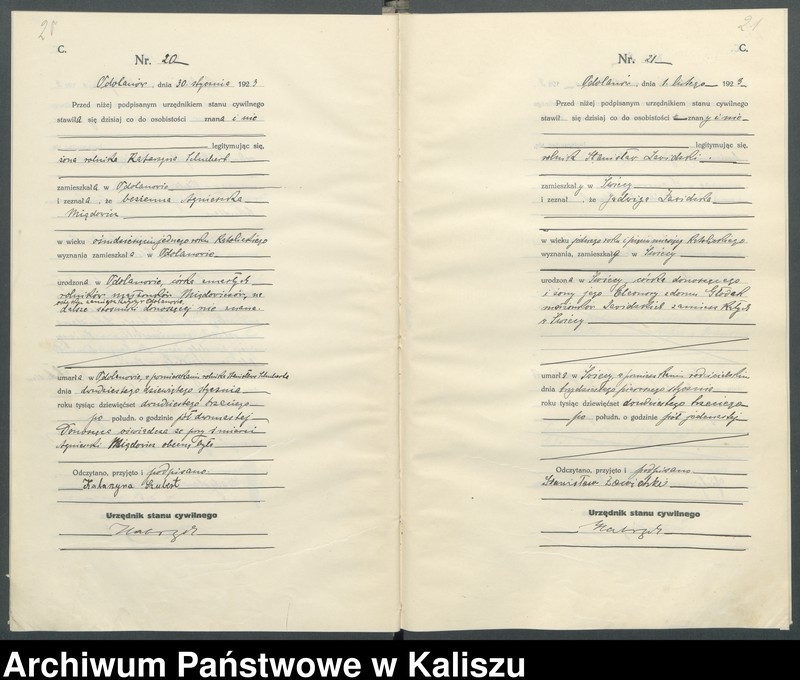 28
C.
Nr. 20
Odolanów, dnia 30 stycznia 1923
Przed niżej podpisanym urzędnikiem stanu cywilnego
stawiła się dzisiaj co do osobistości znana i nie
legitymując się,
żona rolnika Katarzyna Schubert
zamieszkała w Odolanowie
i zeznała, że bezżenna Agnieszka
w wieku ośmdziesięciu jednego roku katolickiego
wyznania zamieszkała w Odolanowie
urodzona w Odolanowie, córka zmarłych
rolników małżonków
dalsze stosunki donoszącej nie znane.
umarła w Odolanowie, w pomieszkaniu rolnika Stanisława Schuberta
dnia dwudziestego dziewiątego stycznia
roku tysiąc dziewięćset dwudziestego trzeciego
po połudn. o godzinie pół dwunastej
Donosząca oświadcza że przy śmierci
Agnieszki obecną była
Odczytano, przyjęto i podpisano
Katarzyna Szubert
Urzędnik stanu cywilnego
C.
Nr. 21
Odolanów, dnia 1. lutego 1923
Przed niżej podpisanym urzędnikiem stanu cywilnego
stawił się dzisiaj co do osobistości znany i nie
legitymując się,
rolnik Stanisław Zawidzki
zamieszkały w
i zeznał, że Jadwiga Zawidzka
w wieku jednego roku i miesięcy katolickiego
wyznania, zamieszkała w
urodzona w córka donoszącego
i żony jego Eleonory z domu
małżonków Zawidzkich zamieszkałych
w
umarła w w pomieszkaniu rodzicielskim
dnia trzydziestego pierwszego stycznia
roku tysiąc dziewięćset dwudziestego trzeciego
po połudn. o godzinie pół jedenastej
Odczytano, przyjęto i podpisano
Stanisław Zawidzki
Urzędnik stanu cywilnego
Archiwum Państwowe w Kaliszu